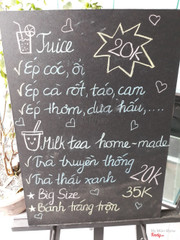 Juice 20K
√ Ép cóc, ổi
√ Ép cà rốt, táo, cam
√ Ép thơm, dưa hấu,....
Milk tea home-made
√ Trà truyền thống
√ Trà thái xanh 20K
★ Big Size 35K
★ Bánh tráng trộn